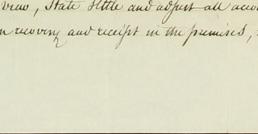 view, State Settle and adjust all acco
n recovery and receipt in the premises,